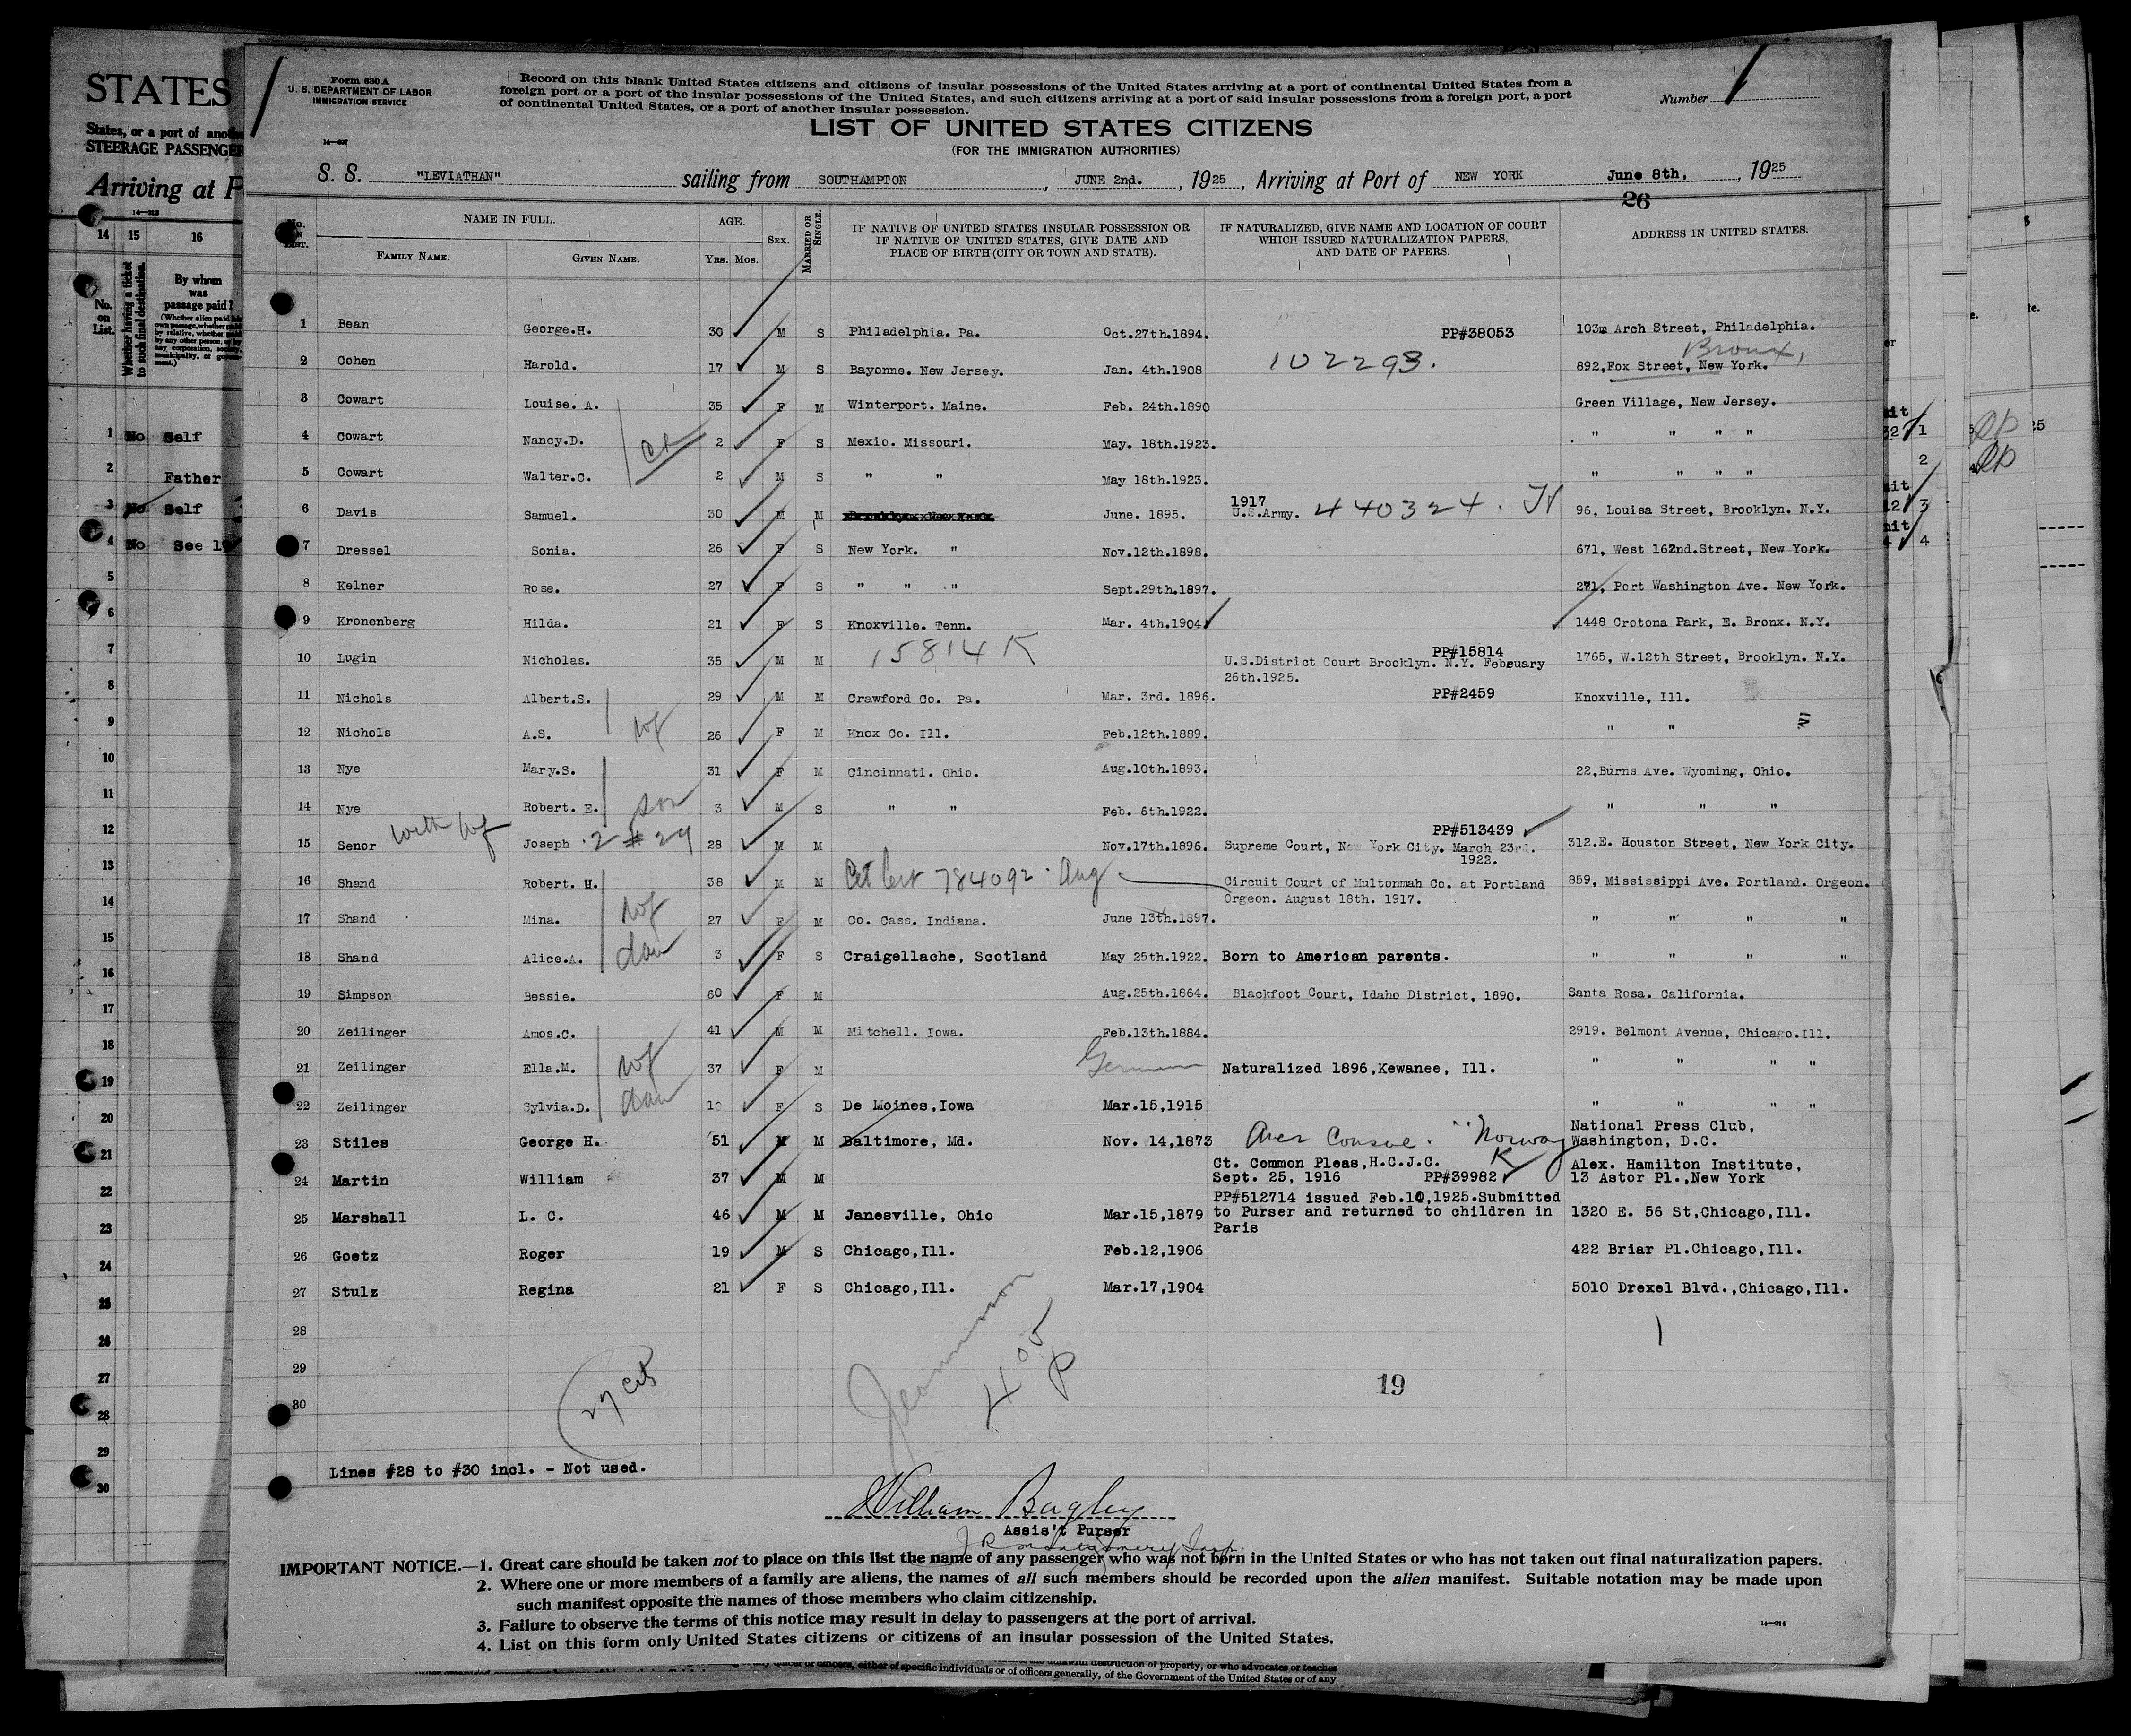 STATES
States, or a port of
STEERAGE PASSENGER
Arriving at P
14—213
14 15 16
No. on List.
Whether having a ticket to such final destination.
By whom was passage paid?
1 No Self
2 Father
3 No Self
4 No See
5
6
7
8
9
10
11
12
13
14
15
16
17
18
19
20
21
22
23
24
25
26
27
28
29
30
Form 630 A
U. S. DEPARTMENT OF LABOR
IMMIGRATION SERVICE
Record on this blank United States citizens and citizens of insular possessions of the United States arriving at a port of continental United States from a
foreign port or a port of the insular possessions of the United States, and such citizens arriving at a port of said insular possessions from a foreign port, a port
of continental United States, or a port of another insular possession.
Number 1
LIST OF UNITED STATES CITIZENS
(FOR THE IMMIGRATION AUTHORITIES)
S. S. "LEVIATHAN" sailing from SOUTHAMPTON, JUNE 2nd., 1925, Arriving at Port of NEW YORK June 8th, 1925
26
No. on List. NAME IN FULL. AGE. SEX. MARRIED OR SINGLE. IF NATIVE OF UNITED STATES INSULAR POSSESSION OR IF NATIVE OF UNITED STATES, GIVE DATE AND PLACE OF BIRTH (CITY OR TOWN AND STATE). IF NATURALIZED, GIVE NAME AND LOCATION OF COURT WHICH ISSUED NATURALIZATION PAPERS, AND DATE OF PAPERS. ADDRESS IN UNITED STATES.
FAMILY NAME. GIVEN NAME. YRS. MOS.
1 Bean George.H. 30 M S Philadelphia. Pa. Oct.27th.1894. PP#38053 103m Arch Street, Philadelphia.
Bronx,
2 Cohen Harold. 17 M S Bayonne. New Jersey. Jan. 4th.1908 102293. 892,Fox Street, New York.
3 Cowart Louise. A. 35 F M Winterport. Maine. Feb. 24th.1890 Green Village, New Jersey.
4 Cowart Nancy.D. 2 F S Mexio. Missouri. May. 18th.1923. " " " "
5 Cowart Walter.C. 2 M S " " May 18th.1923. " " " "
6 Davis Samuel. 30 M M June. 1895. 1917 U.S.Army. 440324. 96, Louisa Street, Brooklyn. N.Y.
7 Dressel Sonia. 26 F S New York. " Nov.12th.1898. 671, West 162nd.Street, New York.
8 Kelner Rose. 27 F S " " " Sept.29th.1897. 271, Port Washington Ave. New York.
9 Kronenberg Hilda. 21 F S Knoxville. Tenn. Mar. 4th.1904 1448 Crotona Park, E. Bronx. N.Y.
10 Lugin Nicholas. 35 M M 15814 K PP#15814 U.S.District Court Brooklyn. N.Y. February 26th.1925. 1765, W.12th Street, Brooklyn. N.Y.
11 Nichols Albert.S. 29 M M Crawford Co. Pa. Mar. 3rd. 1896. PP#2459 Knoxville, Ill.
12 Nichols A.S. wf 26 F M Knox Co. Ill. Feb.12th.1889. " "
13 Nye Mary.S. 31 F M Cincinnati. Ohio. Aug.10th.1893. 22,Burns Ave. Wyoming, Ohio.
14 Nye Robert. E. son 3 M S " " Feb. 6th.1922. " " "
15 Senor with wf Joseph .2 # 29 28 M M Nov.17th.1896. PP#513439 Supreme Court, New York City. March 23rd. 1922. 312.E. Houston Street, New York City.
16 Shand Robert. H. 38 M M Cit Cert 784092 . Aug Circuit Court of Multonmah Co. at Portland Orgeon. August 18th. 1917. 859, Mississippi Ave. Portland. Orgeon.
17 Shand Mina. wf 27 F M Co. Cass. Indiana. June 13th.1897. " " " "
18 Shand Alice.A. dau 3 F S Craigellache, Scotland May 25th.1922. Born to American parents. " " " "
19 Simpson Bessie. 60 F M Aug.25th.1864. Blackfoot Court, Idaho District, 1890. Santa Rosa. California.
20 Zeilinger Amos.C. 41 M M Mitchell. Iowa. Feb.13th.1884. 2919. Belmont Avenue, Chicago.Ill.
21 Zeilinger Ella.M. wf 37 F M German Naturalized 1896,Kewanee, Ill. " " " "
22 Zeilinger Sylvia.D. dau 10 F S De Moines,Iowa Mar.15,1915 " " " "
23 Stiles George H. 51 M M Baltimore, Md. Nov. 14,1873 Norway National Press Club, Washington, D.C.
24 Martin William 37 M M Ct. Common Pleas,H.C.J.C. Sept. 25, 1916 PP#39982 Alex. Hamilton Institute, 13 Astor Pl.,New York
25 Marshall L. C. 46 M M Janesville, Ohio Mar.15,1879 PP#512714 issued Feb.10,1925.Submitted to Purser and returned to children in Paris 1320 E. 56 St,Chicago,Ill.
26 Goetz Roger 19 M S Chicago,Ill. Feb.12,1906 422 Briar Pl.Chicago,Ill.
27 Stulz Regina 21 F S Chicago,Ill. Mar.17,1904 5010 Drexel Blvd.,Chicago,Ill.
28
29
30
19
Lines #28 to #30 incl. - Not used.
William Bagley
Assis't Purser
IMPORTANT NOTICE.—1. Great care should be taken not to place on this list the name of any passenger who was not born in the United States or who has not taken out final naturalization papers.
2. Where one or more members of a family are aliens, the names of all such members should be recorded upon the alien manifest. Suitable notation may be made upon
such manifest opposite the names of those members who claim citizenship.
3. Failure to observe the terms of this notice may result in delay to passengers at the port of arrival.
4. List on this form only United States citizens or citizens of an insular possession of the United States.
14—214
either of specific individuals or of officers generally, of the Government of the United States or of any